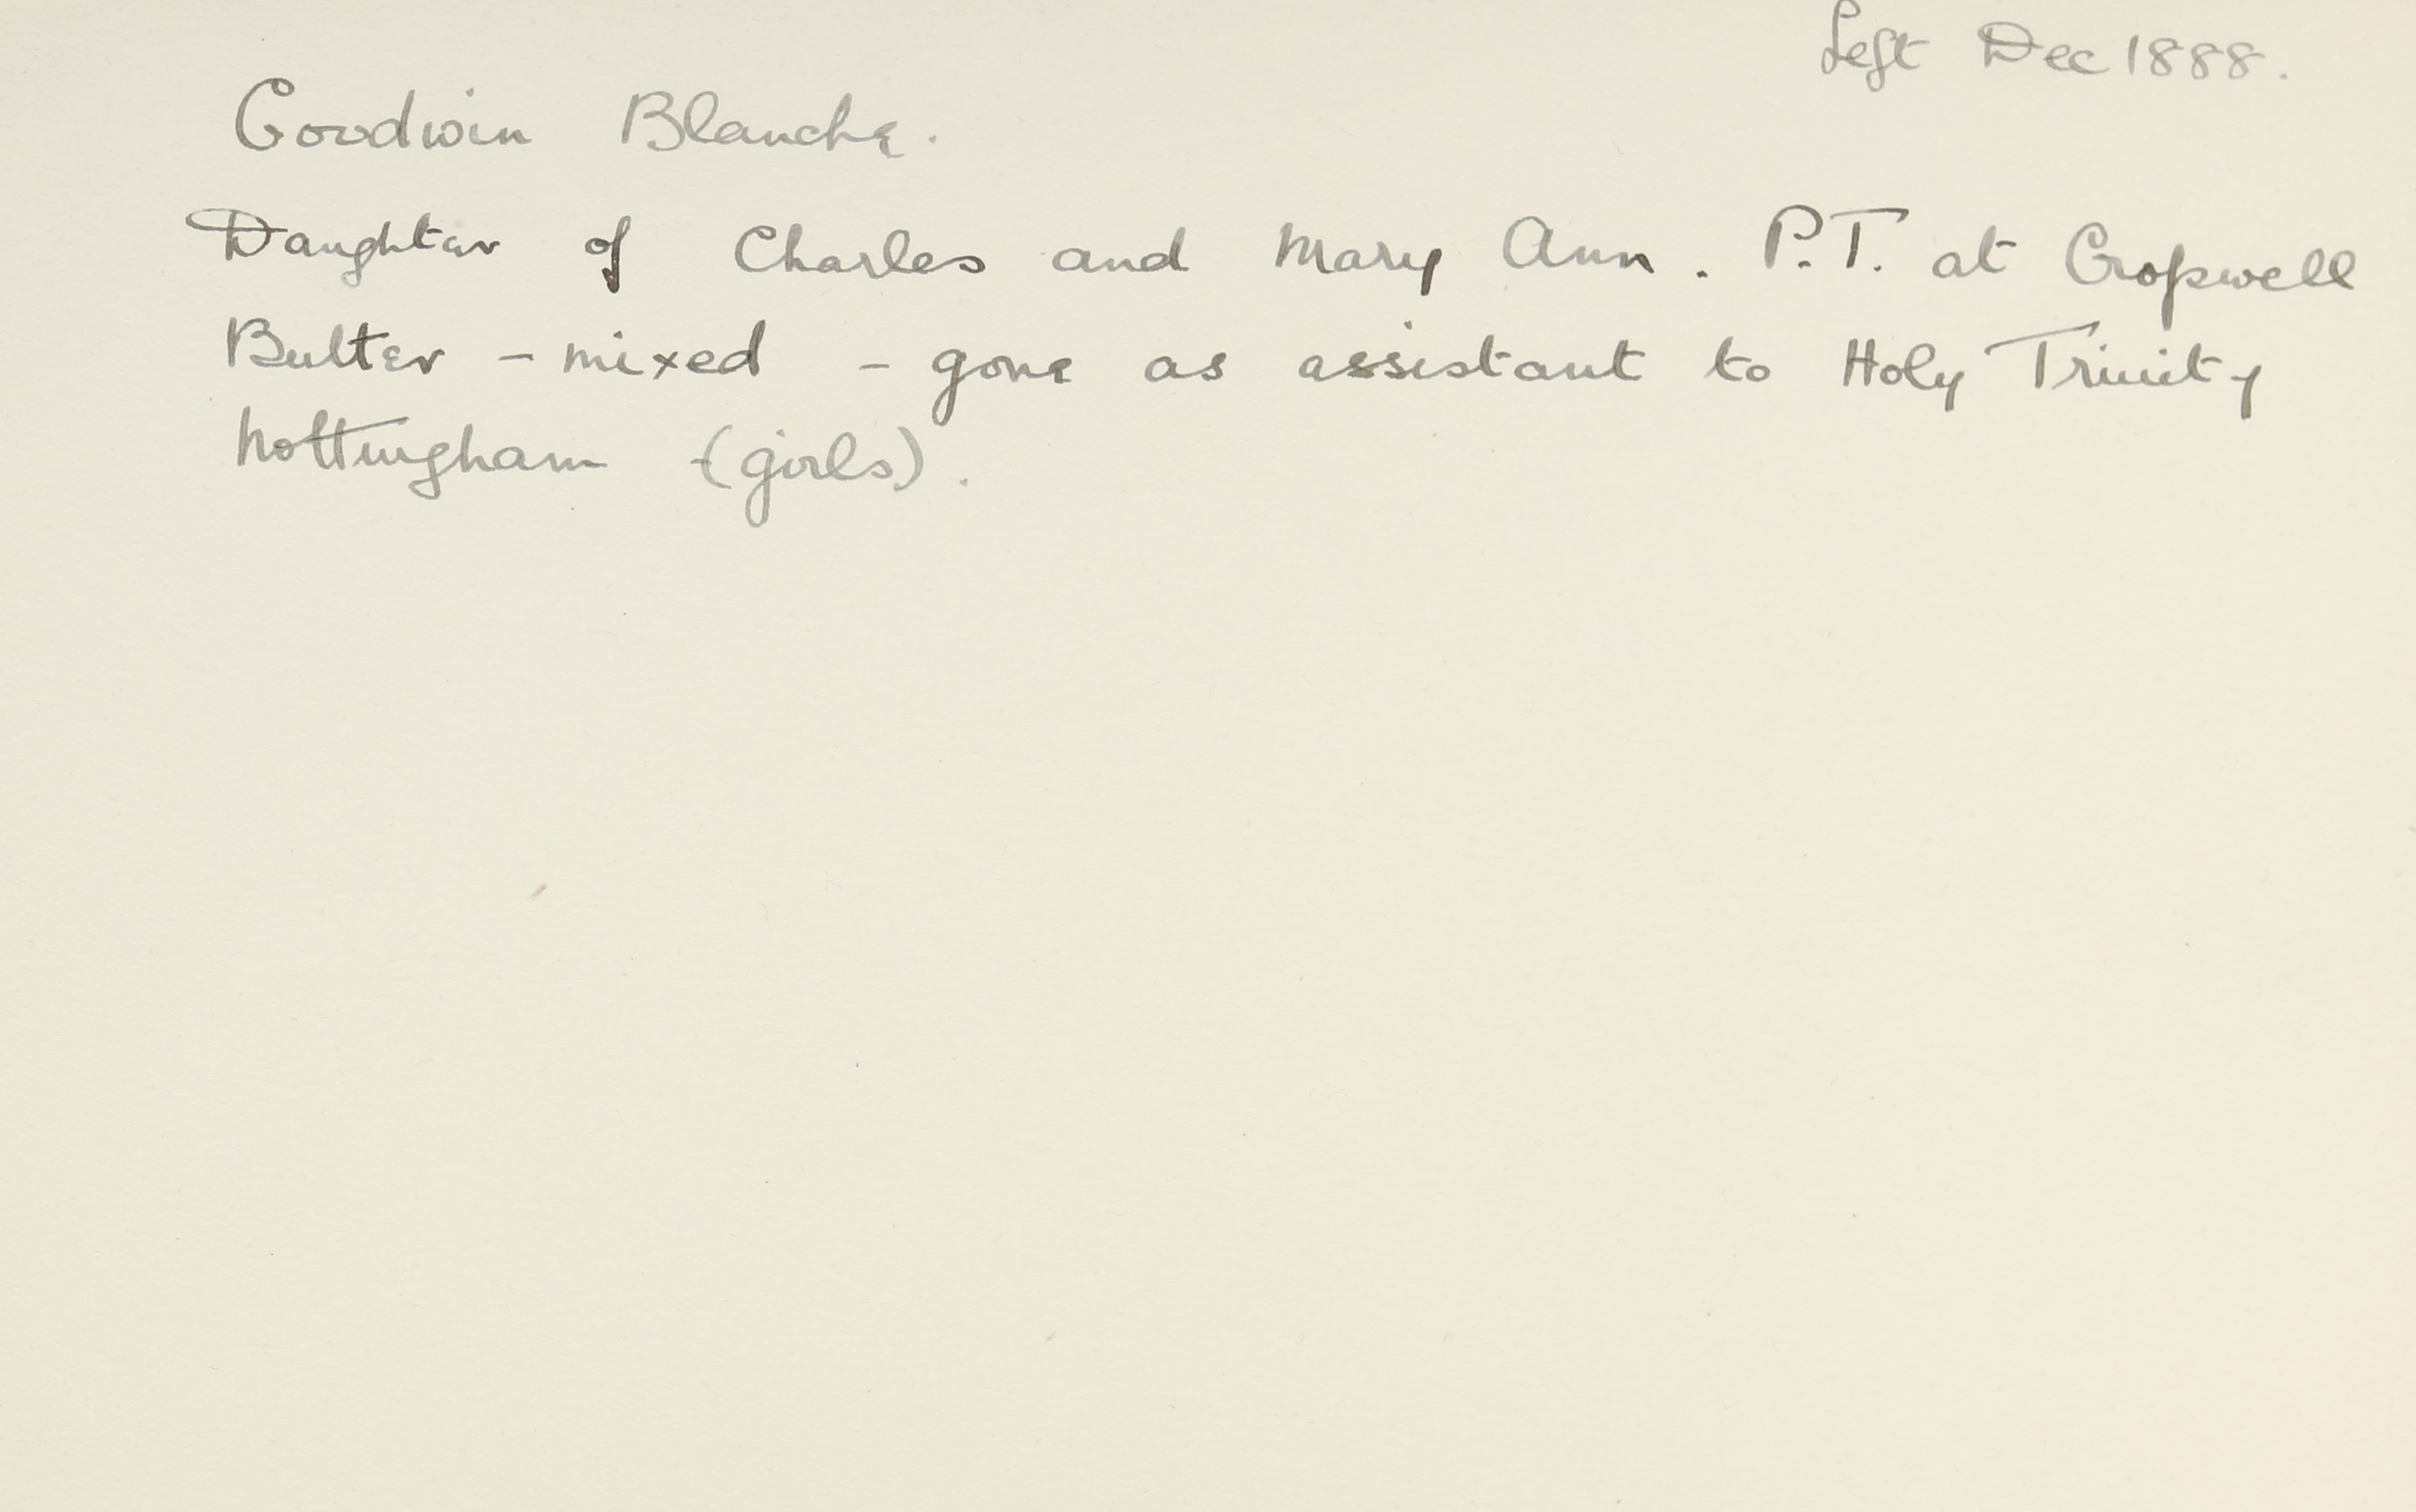 Left Dec 1888.
Goodwin Blanche.
Daughter of Charles and Mary Ann. P.T. at Cropwell
Bulter - mixed - gone as assistant to Holy Trinity
Nottingham (girls).